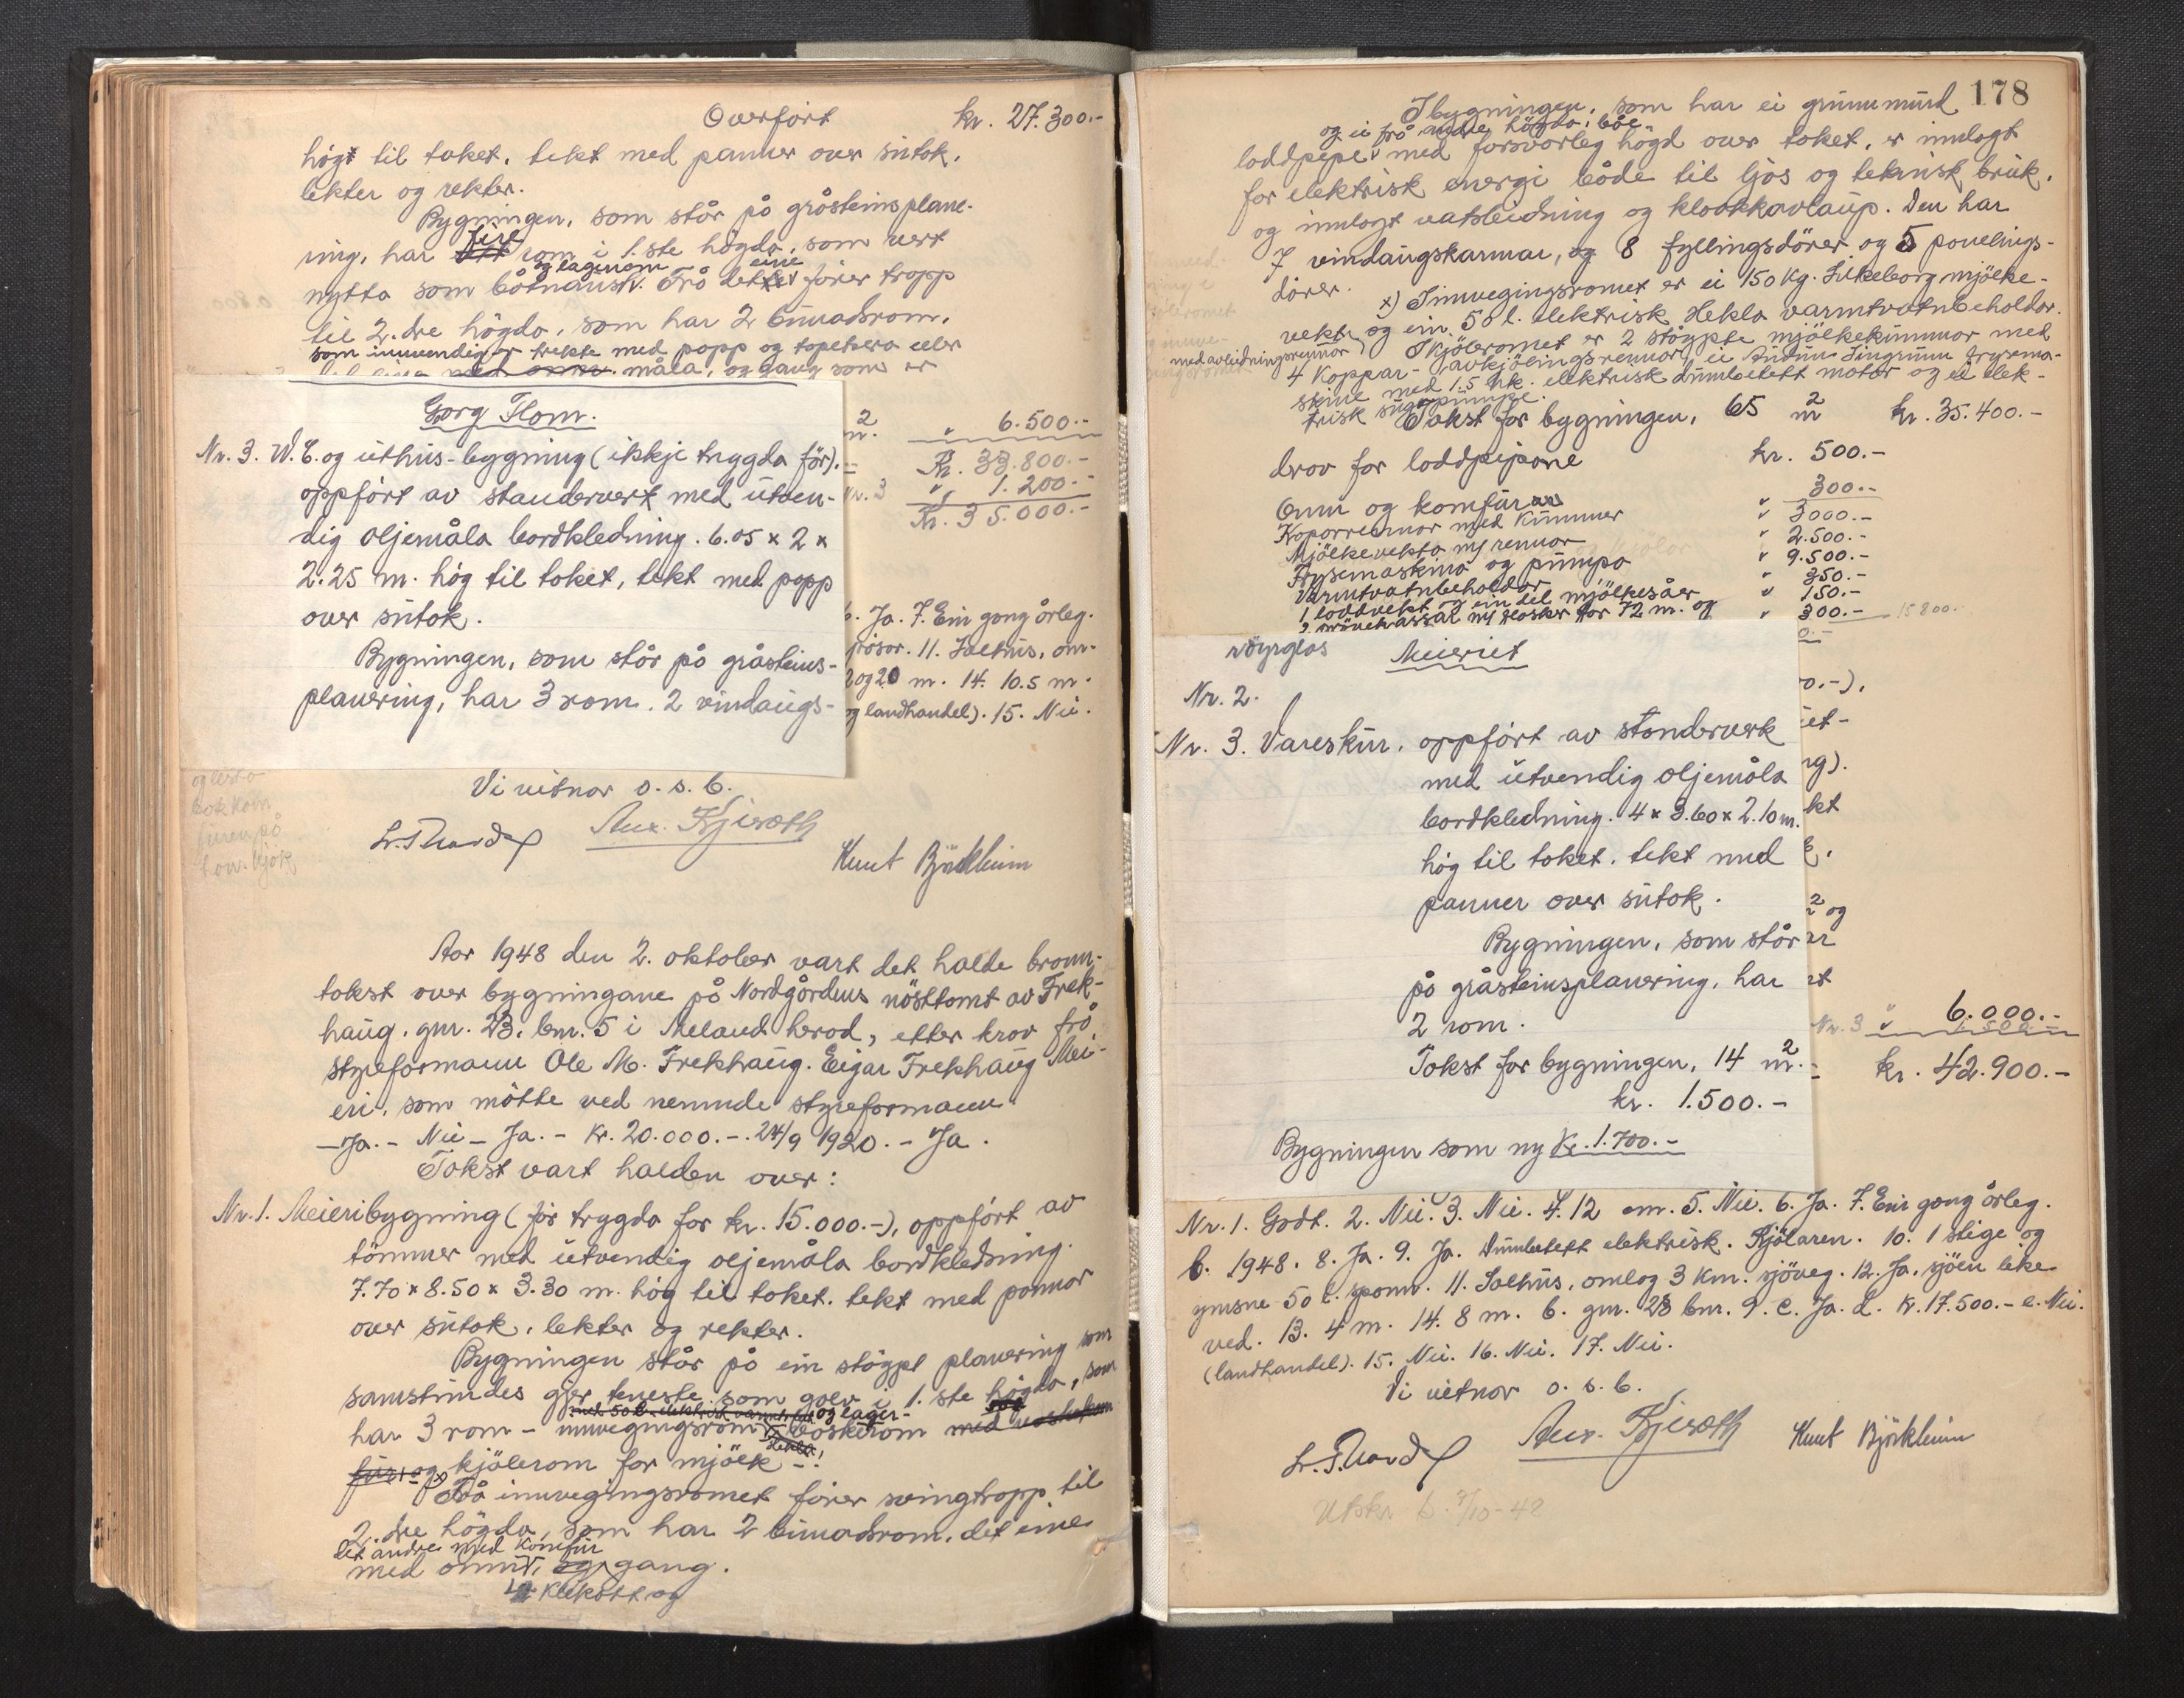 Overført kr. 27.300.-
högt til taket, tekt med panner over sutak,
lekter og rekter.
Bygningen, som står på gråsteinsplane-
fire
ring, har rom i 1.ste högda, som vert
og lagerrom eine
nytta som båtnaust. Frå dette förer tropp
til 2.dre högda, som har 2 bumadsrom,
som innvendig er trekte med papp og tapetsera eller
måla, og gang som er
Gorg Flom.
Nr. 3. W.C. og uthus-bygning (ikkje trygda för).
oppfört av standerverk med utven-
dig oljemåla bordkledning. 6.05 x 2 x
2.25 m. hög til taket, tekt med papp
over sutak.
Bygningen, som står på gråsteins-
planering, har 3 rom. 2 vindaugs-
m.2 " 6.500.-
Kr. 33.800.-
Nr. 3 " 1.200.-
Kr. 35.000.-
6. Ja. 7. Ein gong årleg.
11. Salhus, om-
og 20 m. 14. 10.5 m.
og landhandel). 15. Nei.
Vi vitnar o.s.b.
Aux. Kjieroth
Knut Björkheim
Aar 1948 den 2. oktober vart det halde brann-
takst over bygningane på Nordgårdens nösttomt av Frek-
haug, gnr. 23, bnr. 5 i Meland herad, etter krav frå
styreformann Ole M. Frekhaug. Eigar Frekhaug Mei-
eri, som mötte ved nemnde styreformann.
-Ja.- Nei- Ja.- Kr. 20.000.-. 24/9 1920.- Ja.
Takst vart halden over:
Nr. 1. Meieribygning (för trygda for kr. 15.000.-), oppfört av
tömmer med utvendig oljemåla bordkledning.
7.70 x 8.50 x 3.30 m. hög til taket, tekt med pannor
over sutak, lekter og rekter.
Bygningen står på ein stöypt planering som
samstundes gjer teneste som golv i 1.ste högda, som
og lager-
har 3 rom - innvegingsrom, vaskerom
og kjölerom for mjölk -.
x) Frå innvegingsromet förer svingtropp til
2.dre högda, som har 2 bumadsrom, det eine
det andre med komfur
med omn, gang.
kleskott og
178
I bygningen, som har ei grunnmurd
og ei frå andre högda, båe
loddpipe med forsvarleg högd over taket, er innlagt
for elektrisk energi både til ljos og teknisk bruk,
og innlagt vatsleidning og kloakkavlaup. Den har
7 vindaugskarmar, og 8 fyllingsdörer og 5 panelings-
dörer.
x) I innvegingsromet er ei 150 kg. Silkeborg mjölke-
vekt og ein 50 l. elektrisk Hekla varmtvatnbeholdar.
I kjöleromet er 2 stöypte mjölkekummar med
med avleidningsrennor
4 koppar- avkjölingsrennor, ei frysema-
skine med 1.5 hk. elektrisk dumbetett motor og ei elek-
trisk sugepumpe.
Takst for bygningen, 65 m2 kr. 35.400.-
derav for loddpipene kr. 500.-
Omn og komfur " 300.-
Koparrennor med kummer " 3000.-
Mjölkevekta m/ rennor " 2.500.-
Frysemaskina og pumpa " 9.500.-
Varmtvatnbeholdar " 350.-
1 loddvekt og ein del mjölkesåer " 150.-
prövekassar m/ flasker for 72 m. og " 300.- 15800.-
röyrglas Meieriet
Nr. 2.
Nr. 3. Vareskur, oppfört av standerverk
med utvendig oljemåla
bordkledning. 4 x 3.60 x 2.10 m.
hög til taket, tekt med
panner over sutak.
Bygningen, som står
på gråsteinsplanering, har
2 rom.
Takst for bygningen, 14 m2.
kr. 1.500.-
Bygningen som ny kr. 1.700.-
" 6.000.-
Nr. 3 " 1.500.-
kr. 42.900.-
Nr. 1. Godt. 2. Nei. 3. Nei. 4. 12 cm. 5. Nei. 6. Ja. 7. Ein gong årleg.
b. 1948. 8. Ja. 9. Ja. Dumbetett elektrisk. Kjölaren. 10. 1 stige og
ymsne 50 l. spann. 11. Salhus, omlag 3 km. sjöveg. 12. Ja, sjöen like
ved. 13. 4 m. 14. 8 m. b. gnr. 23 bnr. 9. c. Ja. d. Kr. 17.500.- e. Nei.
(landhandel). 15. Nei. 16. Nei. 17. Nei.
Vi vitnar o.s.b.
Aux. Kjieroth
Knut Björkheim
Utskr. b. 7/10-48